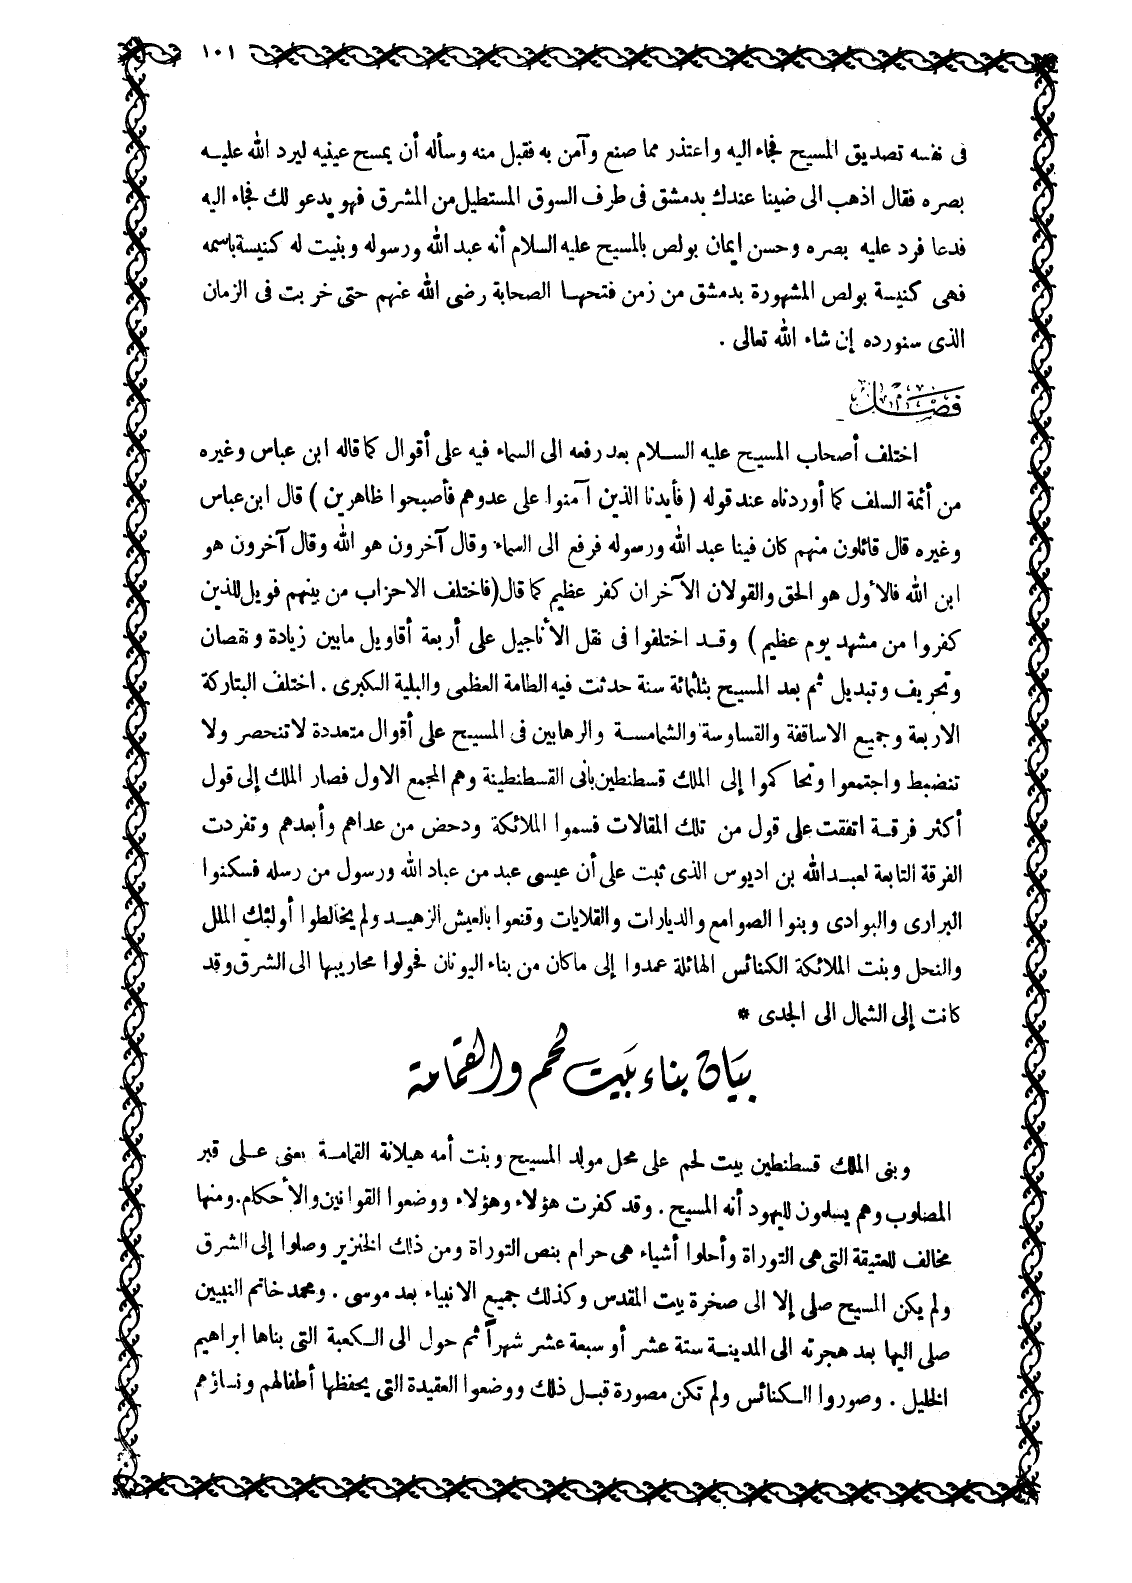 ١٠١
فى نفسه تصديق المسيح فجاء اليه واعتذر مما صنع وآمن به فقبل منه وسأله أن يمسح عينيه ليرد الله عليه
بصره فقال اذهب الى ضينا عندك بدمشق فى طرف السوق المستطيل من المشرق فهو يدعو لك فجاء اليه
فدعا فرد عليه بصره وحسن ايمان بولص بالمسيح عليه السلام أنه عبد الله ورسوله وبنيت له كنيسة باسمه
فهى كنيسة بولص المشهورة بدمشق من زمن فتحها الصحابة رضى الله عنهم حتى خربت فى الزمان
الذى سنورده إن شاء الله تعالى .
فصل
اختلف أصحاب المسيح عليه السلام بعد رفعه الى السماء فيه على أقوال كما قاله ابن عباس وغيره
من أئمة السلف كما أوردناه عند قوله ( فأيدنا الذين آمنوا على عدوهم فأصبحوا ظاهرين ) قال ابن عباس
وغيره قال قائلون منهم كان فينا عبد الله ورسوله فرفع الى السماء وقال آخرون هو الله وقال آخرون هو
ابن الله فالأول هو الحق والقولان الآخران كفر عظيم كما قال(فاختلف الاحزاب من بينهم فويل للذين
كفروا من مشهد يوم عظيم ) وقد اختلفوا فى نقل الأناجيل على أربعة أقاويل مابين زيادة ونقصان
وتحريف وتبديل ثم بعد المسيح بثلثمائة سنة حدثت فيه الطامة العظمى والبلية الكبرى . اختلف البتاركة
الاربعة وجميع الاساقفة والقساوسة والشمامسة والرهابين فى المسيح على أقوال متعددة لاتنحصر ولا
تنضبط واجتمعوا وتحاكموا إلى الملك قسطنطين بانى القسطنطينة وهم المجمع الاول فصار الملك إلى قول
أكثر فرقة اتفقت على قول من تلك المقالات فسموا الملائكة ودحض من عداهم وأبعدهم وتفردت
الفرقة التابعة لعبد الله بن اديوس الذى ثبت على أن عيسى عبد من عباد الله ورسول من رسله فسكنوا
البرارى والبوادى وبنوا الصوامع والديارات والقلايات وقنعوا بالعيش الزهيد ولم يخالطوا أولئك الملل
والنحل وبنت الملائكة الكنائس الهائلة عمدوا إلى ماكان من بناء اليونان فحولوا محاريبها الى الشرق وقد
كانت إلى الشمال الى الجدى *
بيان بناء بيت لحم والقمامة
وبنى الملك قسطنطين بيت لحم على محل مولد المسيح وبنت أمه هيلانة القمامة يعنى على قبر
المصلوب وهم يسلمون لليهود أنه المسيح . وقد كفرت هؤلاء وهؤلاء ووضعوا القوانين والأحكام.ومنها
مخالف للعتيقة التى هى التوراة وأحلوا أشياء هى حرام بنص التوراة ومن ذلك الخنزير وصلوا إلى الشرق
ولم يكن المسيح صلى إلا الى صخرة بيت المقدس وكذلك جميع الانبياء بعد موسى . ومحمد خاتم النبيين
صلى اليها بعد هجرته الى المدينة ستة عشر أو سبعة عشر شهراً ثم حول الى الكعبة التى بناها ابراهيم
الخليل . وصوروا الكنائس ولم تكن مصورة قبل ذلك ووضعوا العقيدة التى يحفظها أطفالهم ونساؤهم